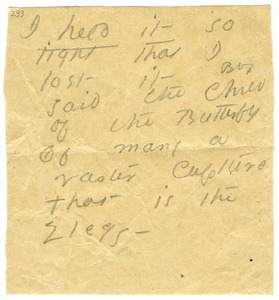 233
I held it so
tight that I
lost it Boy
said the Child
of the Butterfly
Of many a
vaster Capture
that is the
Elegy -